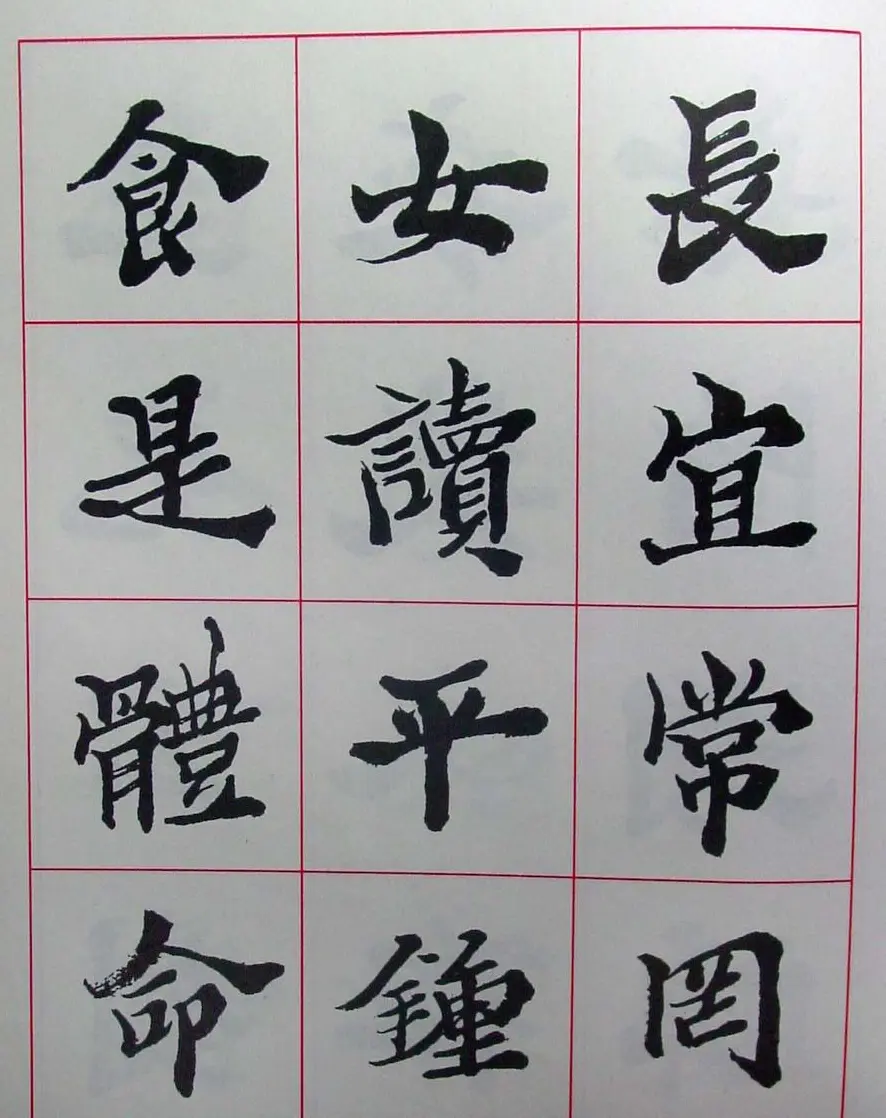 長宜常罔
女讀平鍾
食是體命